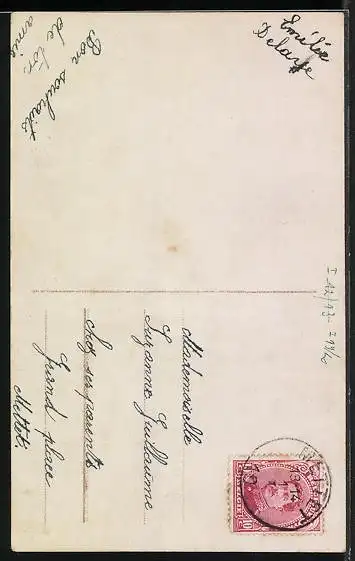 Bon souhaits
de ton
amie
Emilie
Delaye
Mademoiselle
Suzanne Guillaume
chez ses parents
Grand place
Mettet.
10